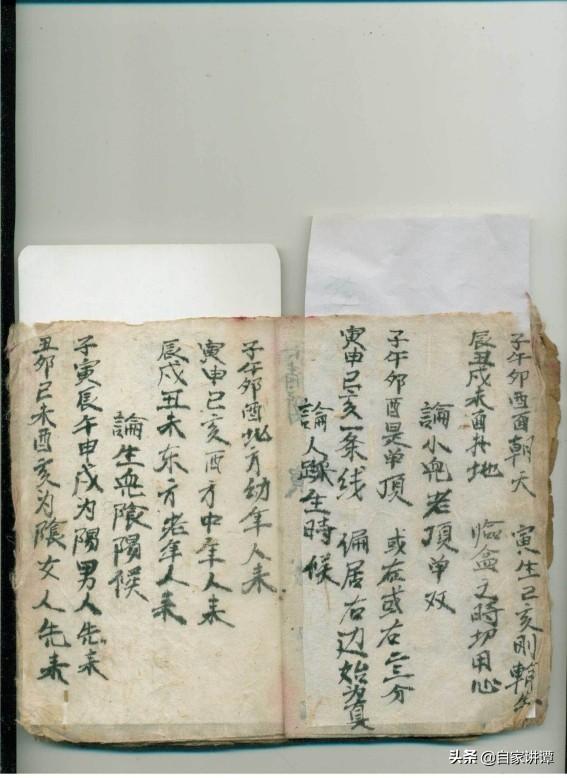 子午卯酉面朝天 寅生已亥刚
辰丑戌未面扑地 临盆之时切用心
論小児老頂单双
子午卯酉是单頂 或在或右二三分
寅申已亥一条线 偏居右边始為真
論人踩生時候
子午卯酉北方幼年人来
寅申已亥西方中年人来
辰戌丑未东方老年人来
論生児陰陽候
子寅辰午申戌为陽男人先来
丑卯已未酉亥为陰女人先来
头条 @自家讲谭